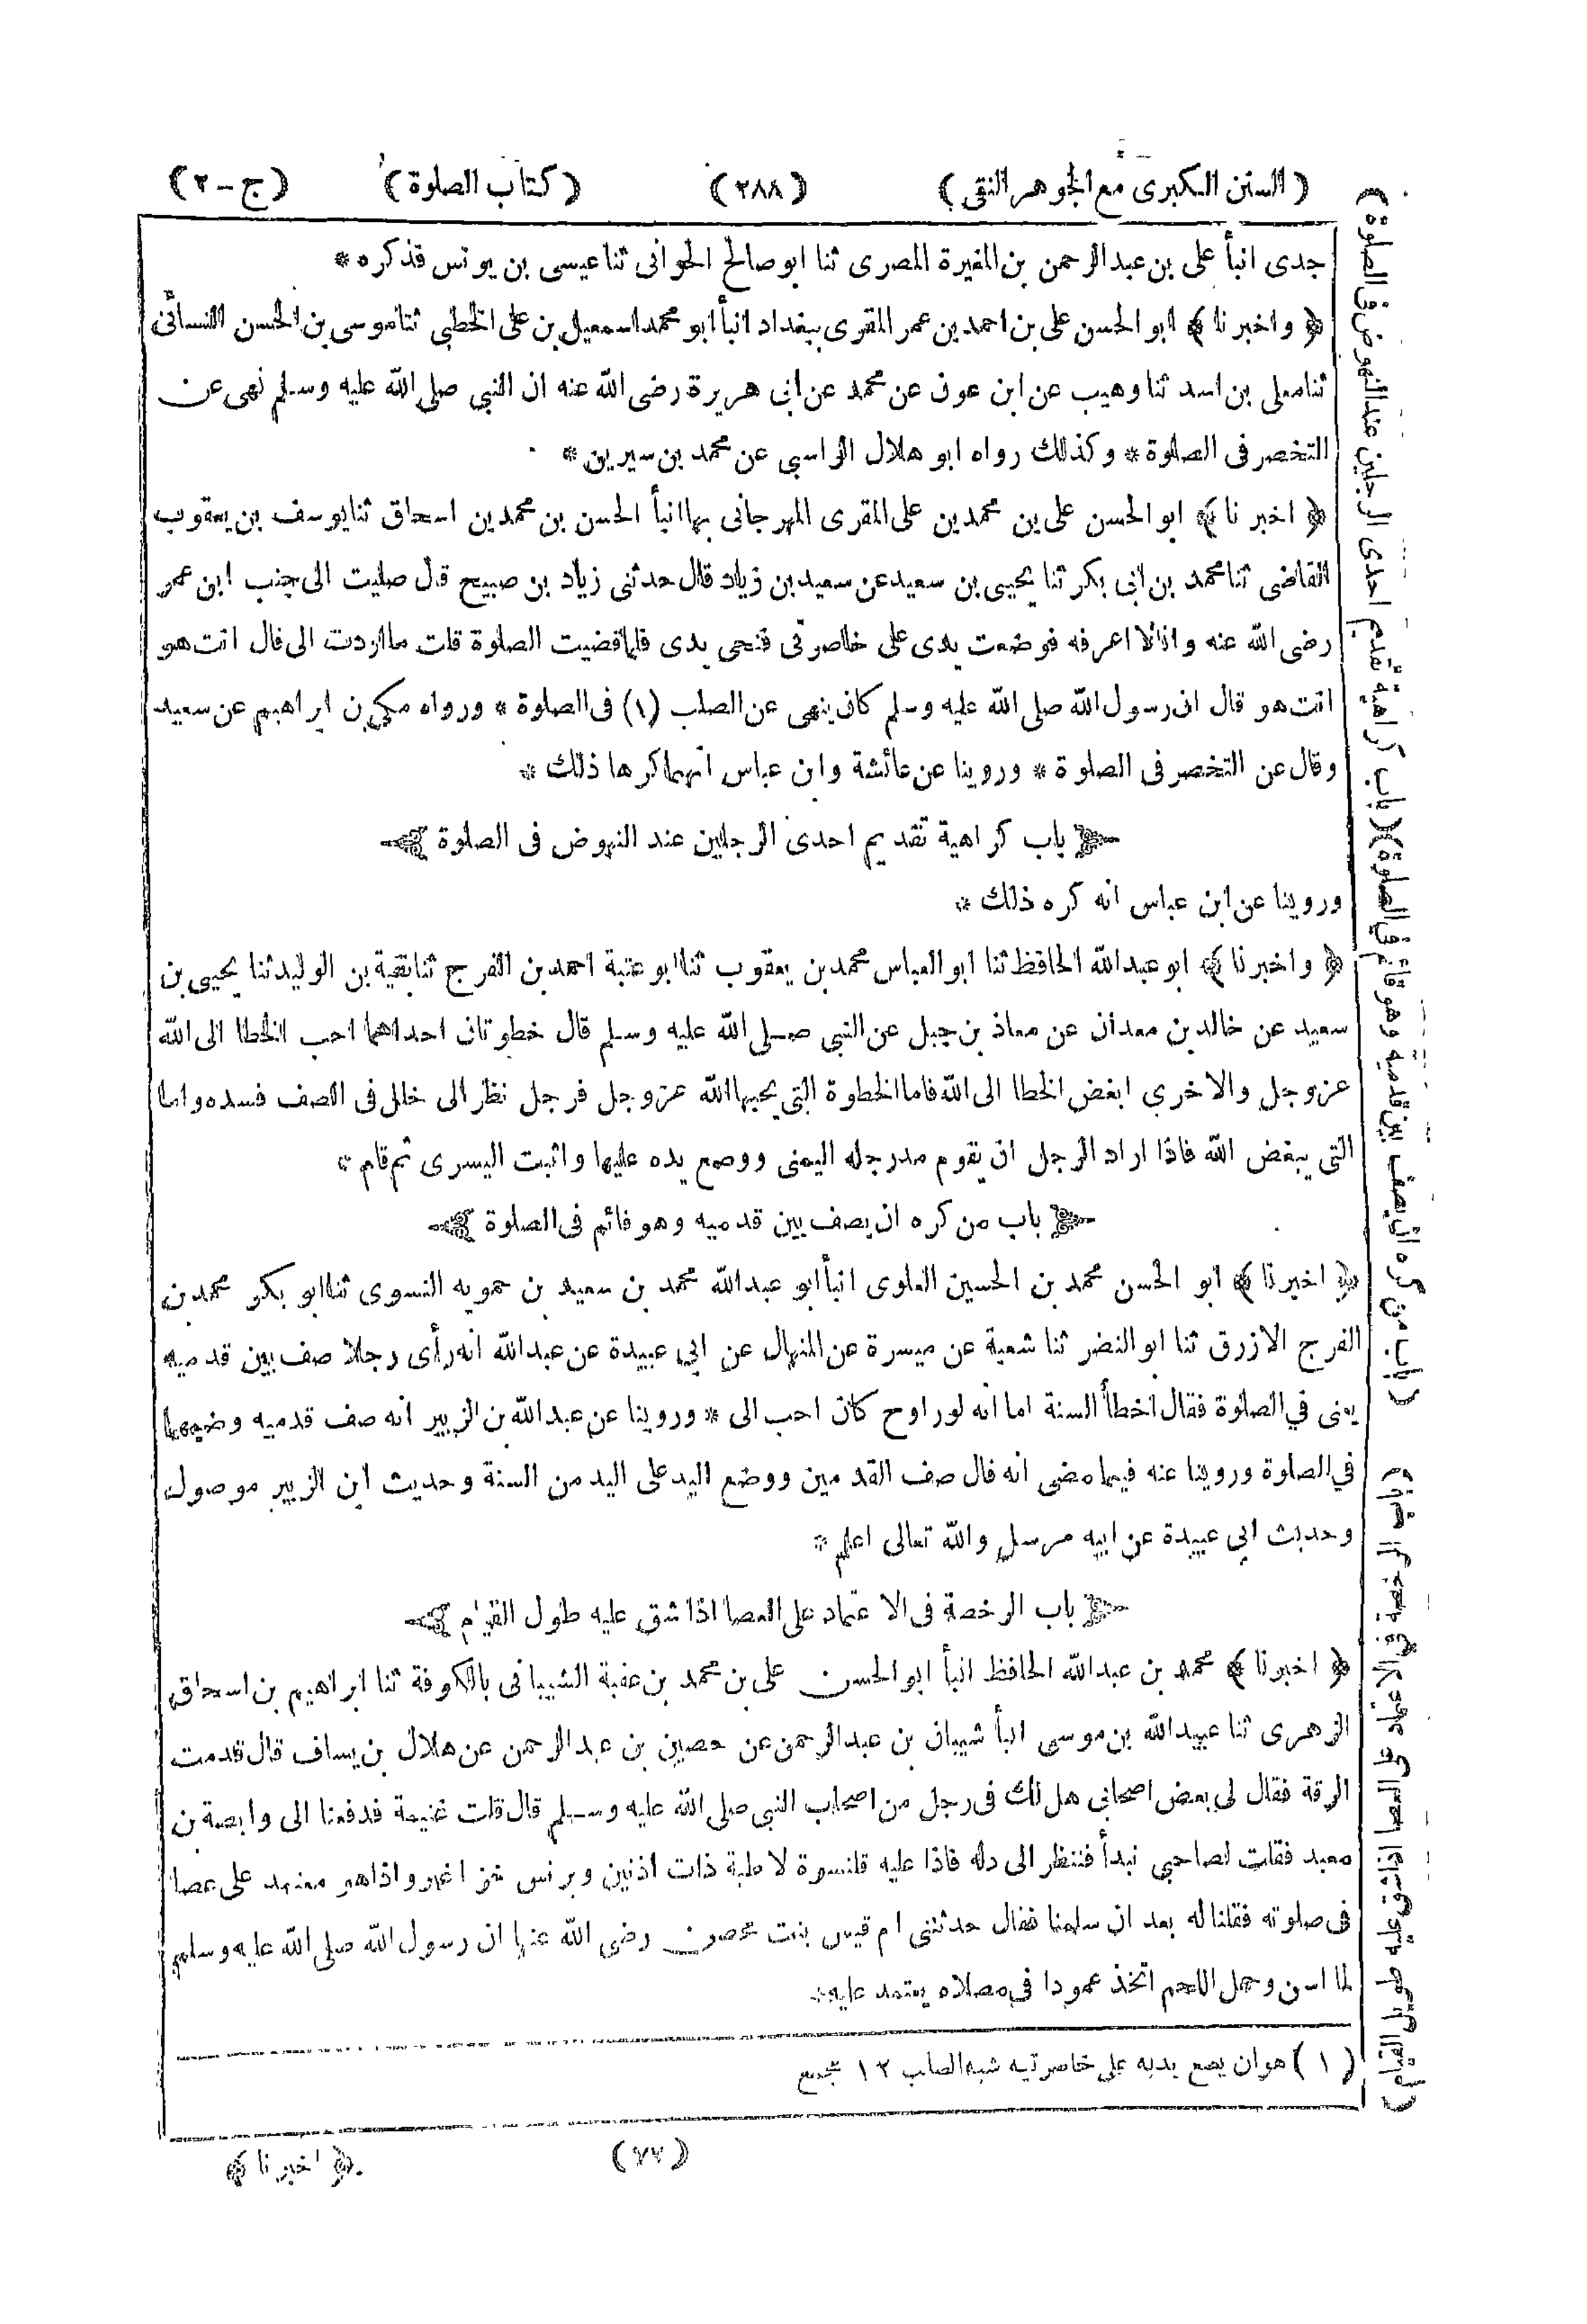 (السنن الكبرى مع الجوهر النقي) (٢٨٨) (كتاب الصلوة) (ج-٢)
جدى انبأ على بن عبد الرحمن بن المغيرة المصرى ثنا ابو صالح الحرانى ثنا عيسى بن يونس فذكره *
﴿ واخبرنا ﴾ ابو الحسن على بن احمد بن عمر المقرى ببغداد انبأ ابو محمد اسمعيل بن على الخطبى ثنا موسى بن الحسن النسائى
ثنا معلى بن اسد ثنا وهيب عن ابن عون عن محمد عن ابى هريرة رضى الله عنه ان النبي صلى الله عليه وسلم نهى عن
التخصر فى الصلوة * وكذلك رواه ابو هلال الراسبي عن محمد بن سيرين *
﴿ اخبرنا ﴾ ابو الحسن على بن محمد بن على المقرى المهرجانى بها انبأ الحسن بن محمد بن اسحاق ثنا يوسف بن يعقوب
القاضى ثنا محمد بن ابى بكر ثنا يحيى بن سعيد عن سعيد بن زياد قال حدثنى زياد بن صبيح قال صليت الى جنب ابن عمر
رضى الله عنه وانا لا اعرفه فوضعت يدى على خاصرتى فنحى يدى فلما قضيت الصلوة قلت ما اردت الى قال انت هو
انت هو قال ان رسول الله صلى الله عليه وسلم كان ينهى عن الصلب (١) فى الصلوة * ورواه مكي بن ابراهيم عن سعيد
وقال عن التخصر فى الصلوة * وروينا عن عائشة وابن عباس انهما كرها ذلك *
باب كراهية تقديم احدى الرجلين عند النهوض فى الصلوة
وروينا عن ابن عباس انه كره ذلك *
﴿ واخبرنا ﴾ ابو عبد الله الحافظ ثنا ابو العباس محمد بن يعقوب ثنا ابو عتبة احمد بن الفرج ثنا بقية بن الوليد ثنا يحيى بن
سعيد عن خالد بن معدان عن معاذ بن جبل عن النبي صلى الله عليه وسلم قال خطوتان احداهما احب الخطا الى الله
عز وجل والاخرى ابغض الخطا الى الله فاما الخطوة التى يحبها الله عز وجل فرجل نظر الى خلل فى الصف فسده واما
التى يبغض الله فاذا اراد الرجل ان يقوم مد رجله اليمنى ووضع يده عليها واثبت اليسرى ثم قام *
باب من كره ان يصف بين قدميه وهو قائم فى الصلوة
﴿ اخبرنا ﴾ ابو الحسن محمد بن الحسين العلوى انبأ ابو عبد الله محمد بن سعيد بن حمويه النسوى ثنا ابو بكر محمد بن
الفرج الازرق ثنا ابو النضر ثنا شعبة عن ميسرة عن المنهال عن ابي عبيدة عن عبد الله انه رأى رجلا صف بين قدميه
يعنى في الصلوة فقال اخطأ السنة اما انه لو راوح كان احب الى * وروينا عن عبد الله بن الزبير انه صف قدميه وضمهما
في الصلوة وروينا عنه فيما مضى انه قال صف القدمين ووضع اليد على اليد من السنة وحديث ابن الزبير موصول
وحديث ابي عبيدة عن ابيه مرسل والله تعالى اعلم *
باب الرخصة فى الاعتماد على العصا اذا شق عليه طول القيام
﴿ اخبرنا ﴾ محمد بن عبد الله الحافظ انبأ ابو الحسن على بن محمد بن عقبة الشيبانى بالكوفة ثنا ابراهيم بن اسحاق
الزهرى ثنا عبيد الله بن موسى انبأ شيبان بن عبد الرحمن عن حصين بن عبد الرحمن عن هلال بن يساف قال قدمت
الرقة فقال لى بعض اصحابى هل لك فى رجل من اصحاب النبي صلى الله عليه وسلم قال قلت غنيمة فدفعنا الى وابصة بن
معبد فقلت لصاحبي نبدأ فننظر الى دله فاذا عليه قلنسوة لاطية ذات اذنين وبرنس خز اغبر واذا هو معتمد على عصا
فى صلوته فقلنا له بعد ان سلمنا فقال حدثتنى ام قيس بنت محصن رضى الله عنها ان رسول الله صلى الله عليه وسلم
لما اسن وحمل اللحم اتخذ عمودا فى مصلاه يعتمد عليه *
(١) هو ان يضع يديه على خاصرتيه شبه الصلب ١٢ مجمع
(٧٢)
﴿ اخبرنا ﴾
(باب كراهية تقديم احدى الرجلين عند النهوض فى الصلوة)
(باب من كره ان يصف بين قدميه وهو قائم فى الصلوة)